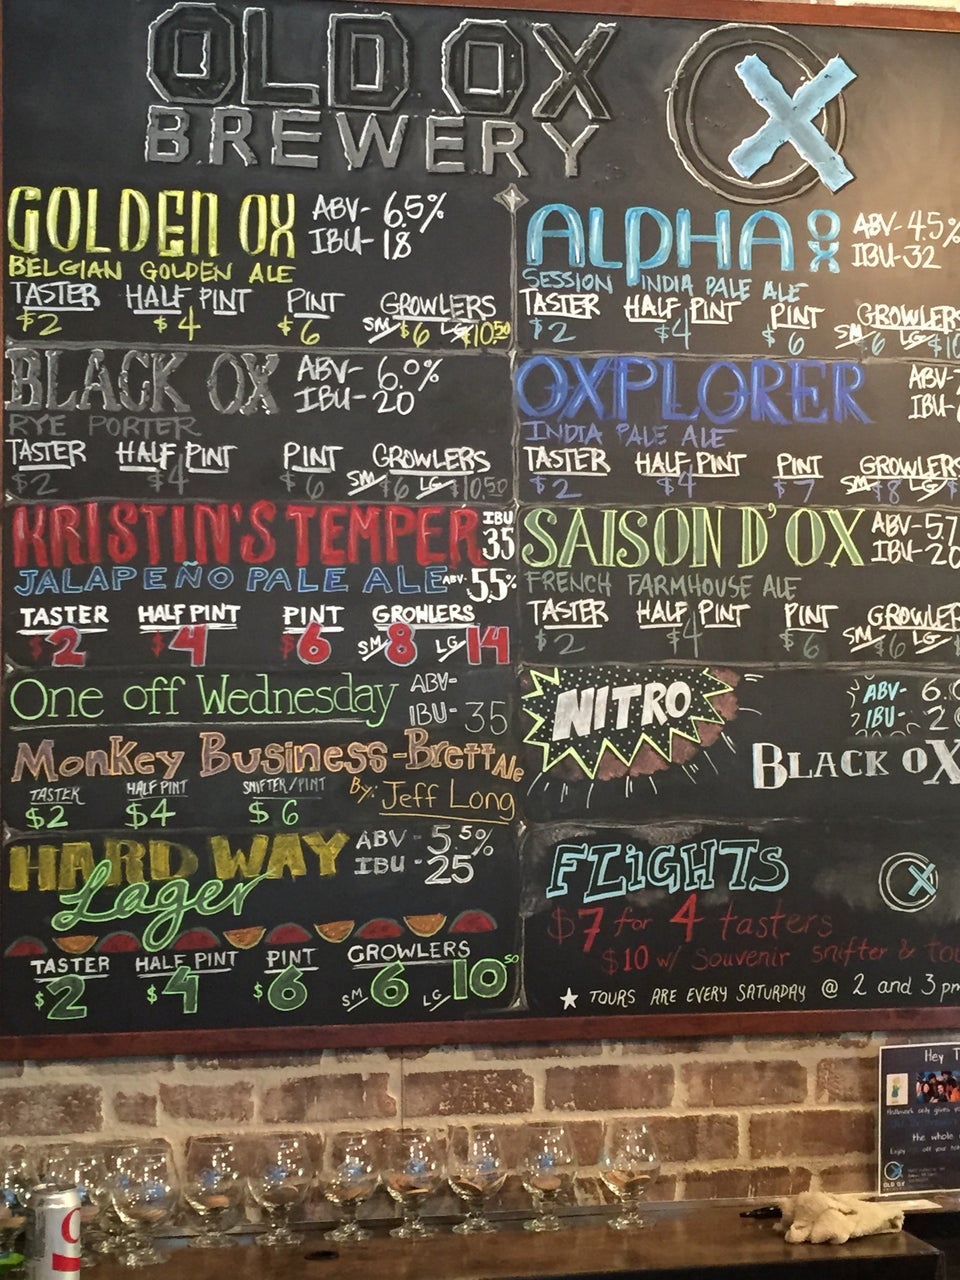 OLD OX
BREWERY
X
GOLDEN OX
ABV- 6.5%
IBU- 18
BELGIAN GOLDEN ALE
TASTER HALF PINT PINT GROWLERS
$2 $4 $6 SM $6 LG $10.50
BLACK OX
ABV- 6.0%
IBU- 20
RYE PORTER
TASTER HALF PINT PINT GROWLERS
$2 $4 $6 SM $6 LG $10.50
KRISTIN'S TEMPER
IBU
35
JALAPEÑO PALE ALE ABV- 5.5%
TASTER HALF PINT PINT GROWLERS
$2 $4 $6 SM 8 LG 14
One off Wednesday
ABV-
IBU- 35
Monkey Business - Brett Ale
TASTER HALF PINT SNIFTER/PINT
By: Jeff Long
$2 $4 $6
HARD WAY
Lager
ABV - 5.5%
IBU - 25
TASTER HALF PINT PINT GROWLERS
$2 $4 $6 SM 6 LG 10.50
ALPHA OX
ABV- 4.5%
IBU- 32
SESSION INDIA PALE ALE
TASTER HALF PINT PINT GROWLERS
$2 $4 $6 SM 6 LG $10
OXPLORER
ABV-
IBU-
INDIA PALE ALE
TASTER HALF PINT PINT GROWLERS
$2 $4 $7 SM $8 LG
SAISON D'OX
ABV- 5.7
IBU- 20
FRENCH FARMHOUSE ALE
TASTER HALF PINT PINT GROWLER
$2 $4 $6 SM $6 LG
NITRO
ABV- 6.0
IBU- 2
BLACK OX
FLIGHTS
X
$7 for 4 tasters
$10 w/ Souvenir snifter & tou
★ TOURS ARE EVERY SATURDAY @ 2 and 3 pm
Hey T
the whole
OLD OX